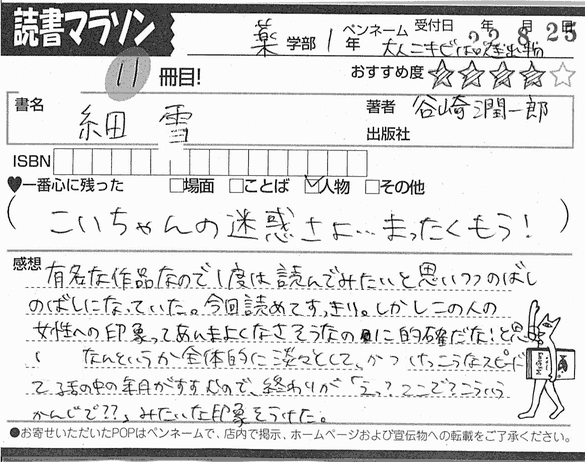 読書マラソン
薬 学部 1 年 ペンネーム 大人ニキビは 出物 受付日 22年 8月 25日
11 冊目! おすすめ度 ★★★★☆
書名 細雪 著者 谷崎潤一郎
出版社
ISBN
♥一番心に残った □場面 □ことば ☑人物 □その他
(こいちゃんの迷惑さよ…まったくもう!)
感想 有名な作品なので1度は読んでみたいと思いつつのばし
のばしになっていた。今回読めてすっきり。しかしこの人の
女性への印象ってあんまよくなさそうなのに的確だな!と思
い なんというか全体的に淡々として、かつけっこうなスピード
で話の中の年月がすすむので、終わりが「えっ?ここで?こういう
かんじで??」みたいな印象をうけた。
●お寄せいただいたPOPはペンネームで、店内で掲示、ホームページおよび宣伝物への転載をご了承ください。